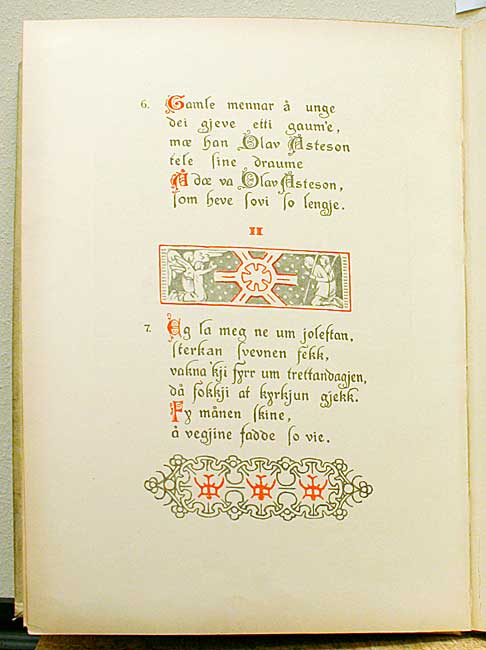 6. Gamle mennar å unge
dei gjeve etti gaum'e,
mæ han Olav Åsteson
tele sine draume
Å dæ va Olav Åsteson,
som heve sovi so lengje.
II
7. Eg la meg ne um joleftan,
sterkan svevnen fekk,
vakna 'kji fyrr um trettandagjen,
då fokkji at kyrkjun gjekk.
Fy månen skine,
å vegjine fadde so vie.